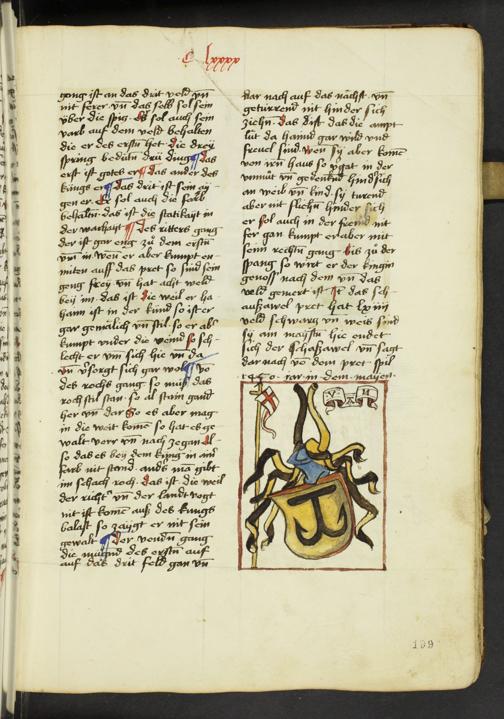 C lxxxx
gong ist an das drit veld vn̄
nit ferer vn̄ das selb sol sein
über die spig. Es sol auch sein
varb auf dem veld behalten
die er des erstn̄ het. die drey
spring bedütn̄ drü ding das
erst ist gotes er. das ander des
kings er das drit ist sein ay
gen er. Er sol auch die farb
behaltn̄ das ist die statikayt in
der warhayt. Des ritters gang
der ist gar eng zu dem erstn̄
vn̄ wen er aber kumpt en
mitten auff das pret so sind sein
geng frey vn̄ hat acht veld
bey im. das ist die weil er ha
haim ist in der kind so ist er
gar gemalich vn̄ stil. so er aber
kumpt vnder die veind so sch
lecht er vm sich hie vn̄ da
vn̄ versorgt sich gar wol
des rochs gang so muß das
roch stil stan. so al stain gand
her vn̄ dar So es aber mag
in die weit komē so hat es ge
walt verr vn̄ nach ze gan Al
so das es bey dem king in aim
farb nit stand. anders mā gibt
im schach roch. das ist die weil
der richter vn̄ der landt vogt
nit ist komē auß des kings
balast so zaygt er nit sein
gewalt. Der vendn̄ gang
die mugend des erstn̄ auf
auf das drit feld gan vn̄
dar nach auf das nächst vn̄
geturrend nit hinder sich
ziehn̄. das ist das die ampt
lüt da hamid gar wild vnd
frevel sind. wen sy aber komē
von irn̄ haus so
an weib vn̄ kind. sy turend
aber nit fliehn̄ hinder sich
er sol auch in der fremd nit
fer gan kumpt er aber mit
seim rechtn̄ gang biß zu der
spang so wirt er der kingin
genoss nach dem vn̄ das
veld geviert ist. It das sch
aufzawel pret hat lxiiii
veld schwarcz vn̄ weis sind
sy am maystn̄ hie endet
sich der schaffzawel vn̄ sagt
dar nach vō dem pret spil
in dem mayen
V H
199